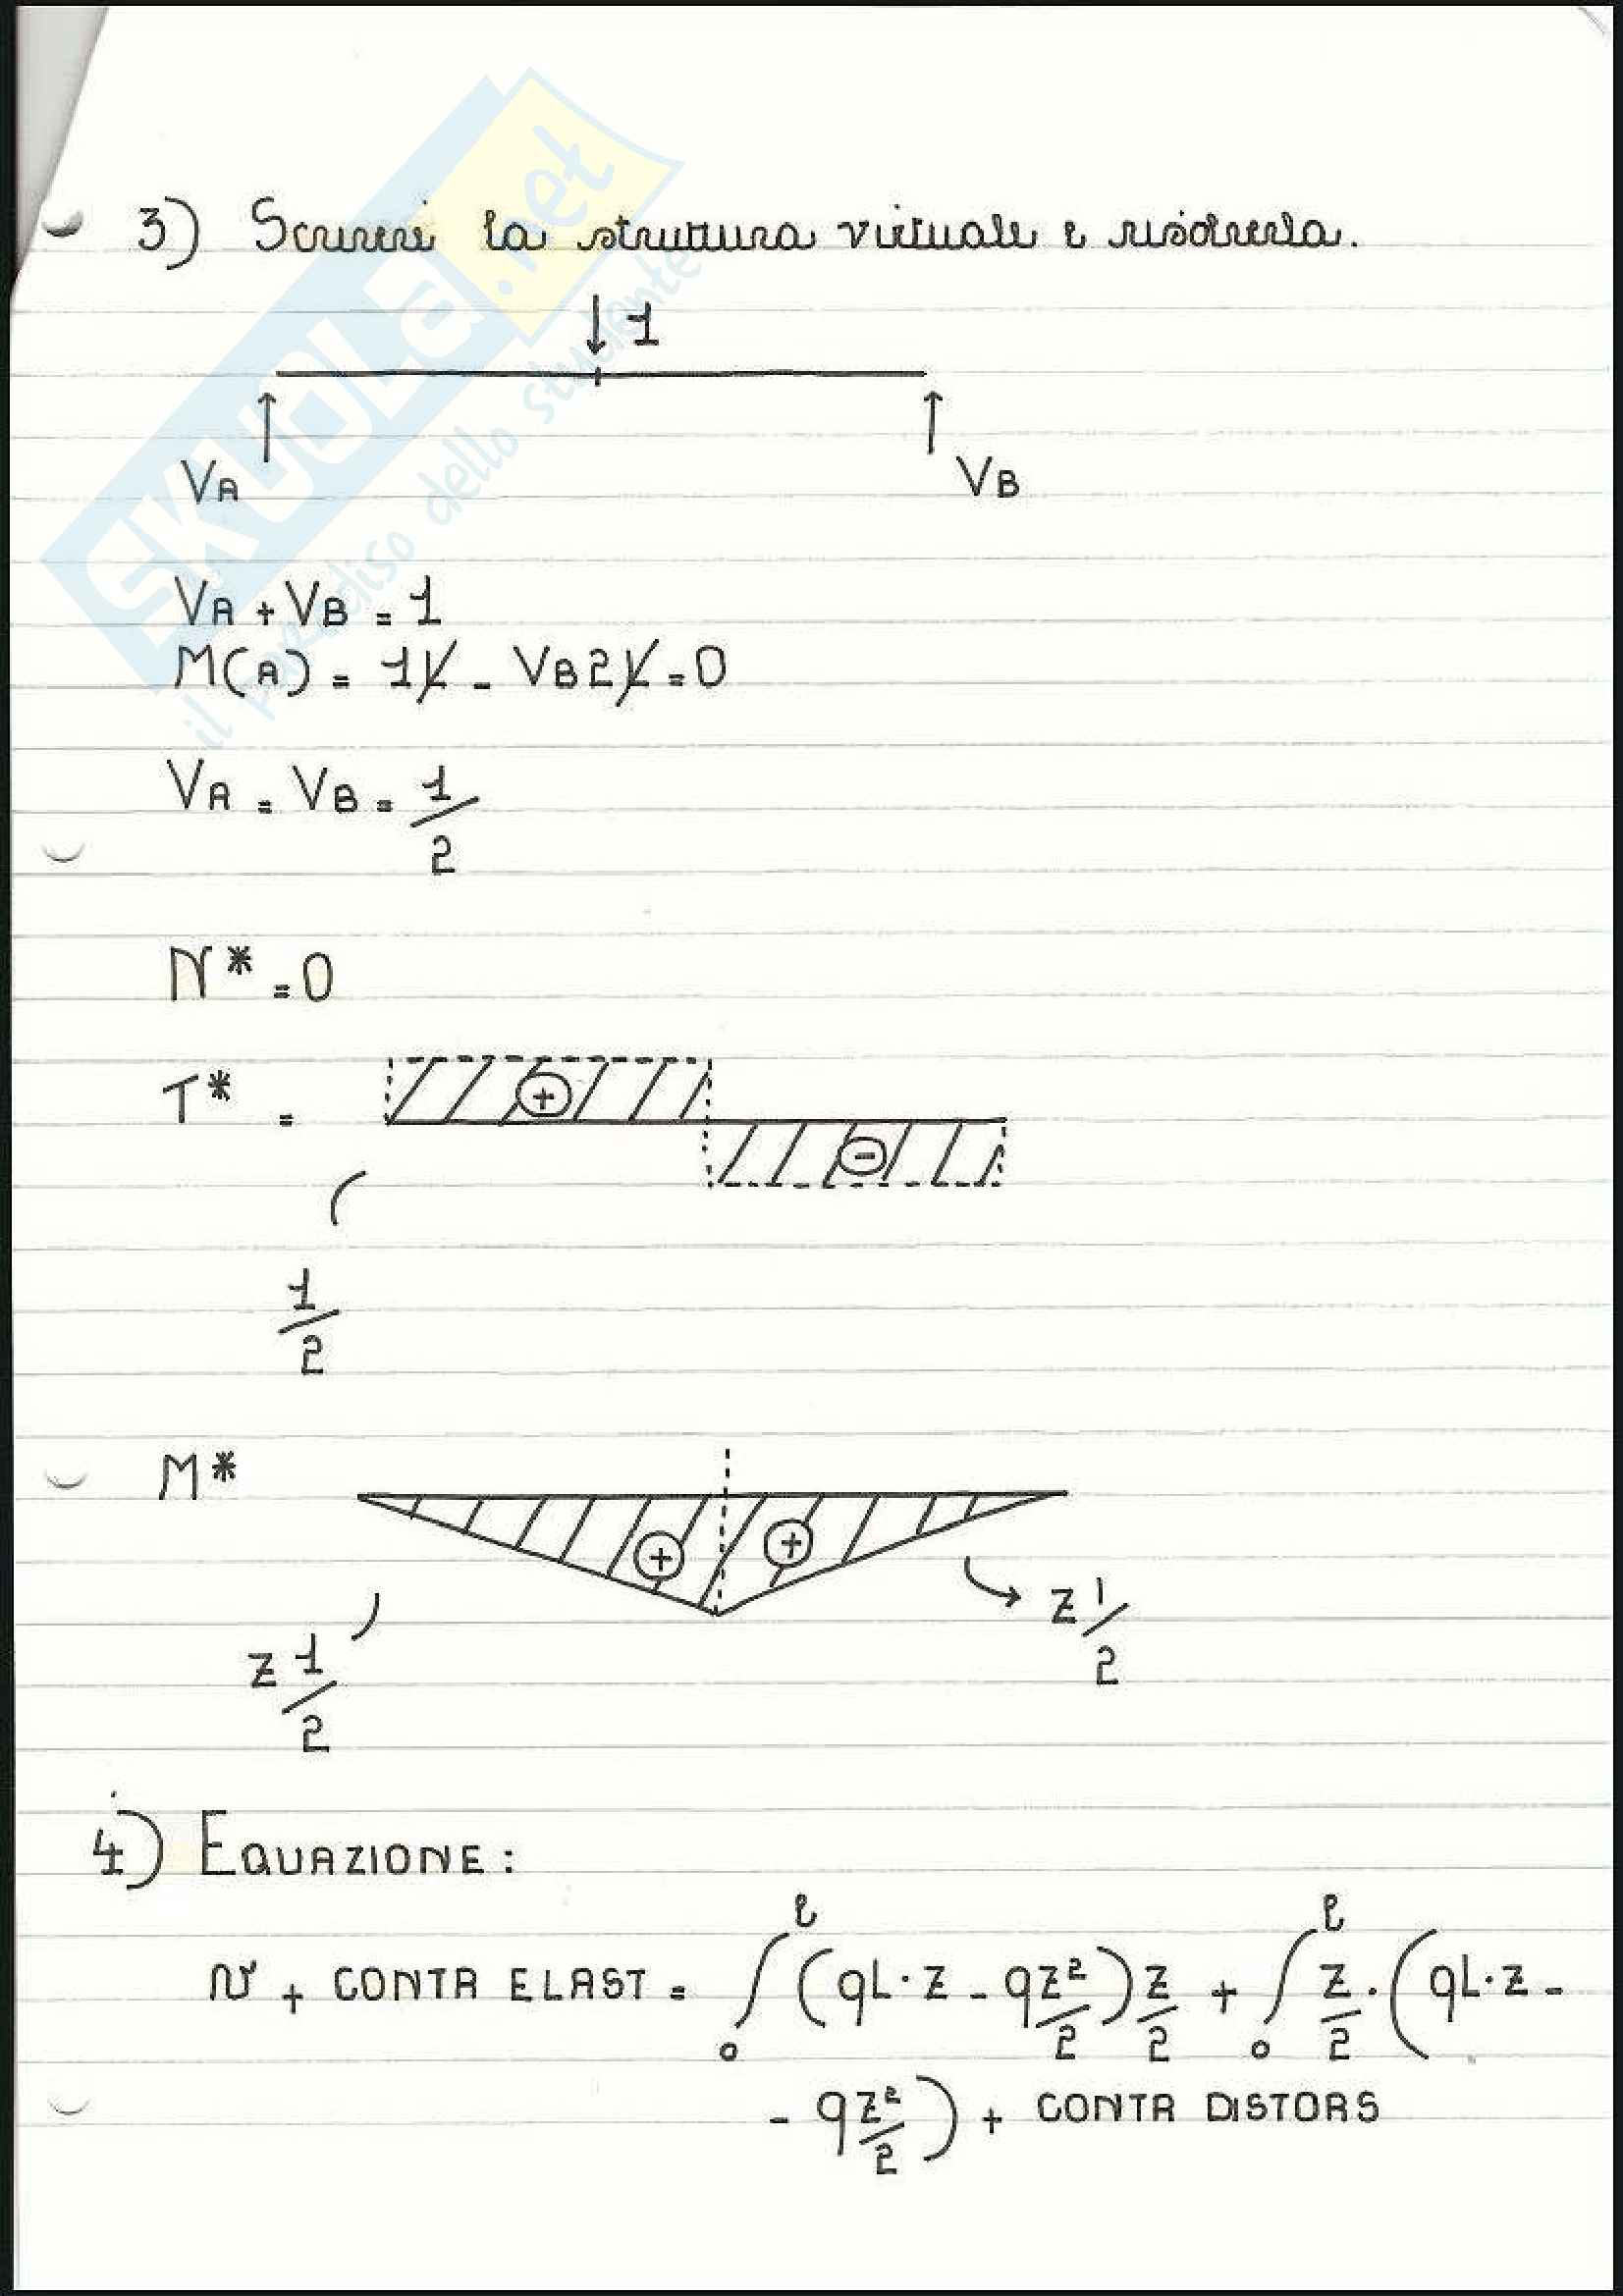 3) Scriversi la struttura virtuale e risolverla.
↓ 1
VA
VB
VA + VB = 1
M(A) = 1L - VB2L = 0
VA = VB = 1/2
N* = 0
T* =
+
-
1/2
M*
+ +
z 1/2
z 1/2
4) EQUAZIONE:
v + CONTR ELAST = ∫₀ˡ (qL·z - qz²/2) z/2 + ∫₀ˡ z/2 · (qL·z -
- qz²/2) + CONTR DISTORS
SKUOLA.net
il paradiso dello studente